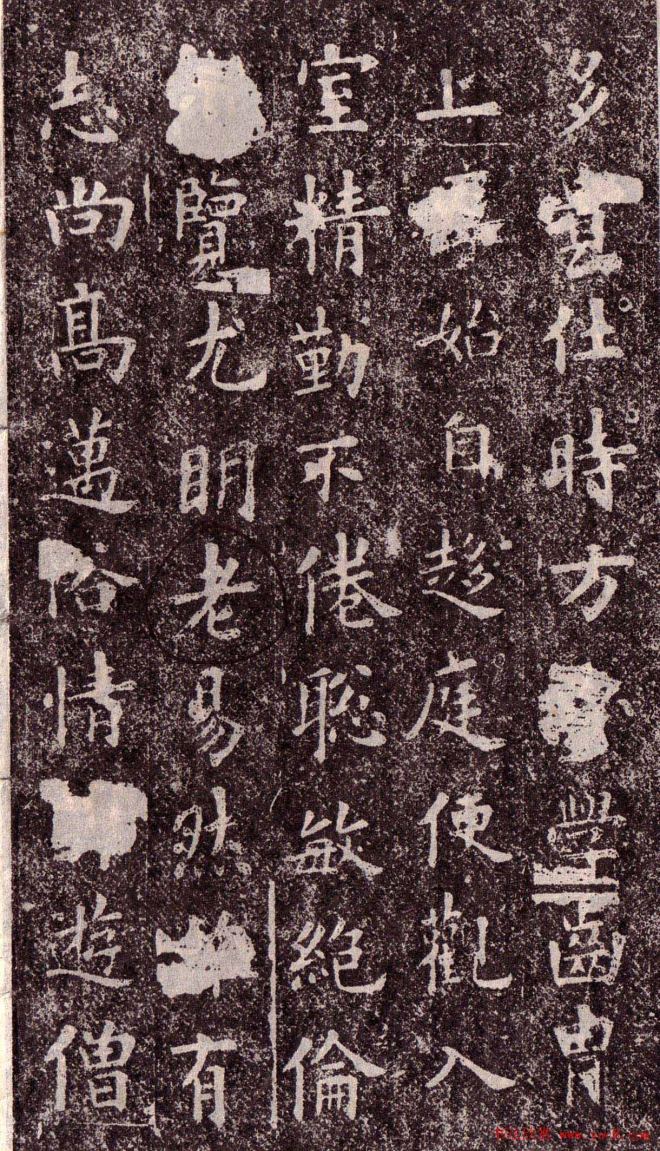 多宜仕時方學齒胄
上始自趍庭便觀入
室精勤不倦聡敏絕倫
覽尤明老易然有
志尚高邁俗情遊僧